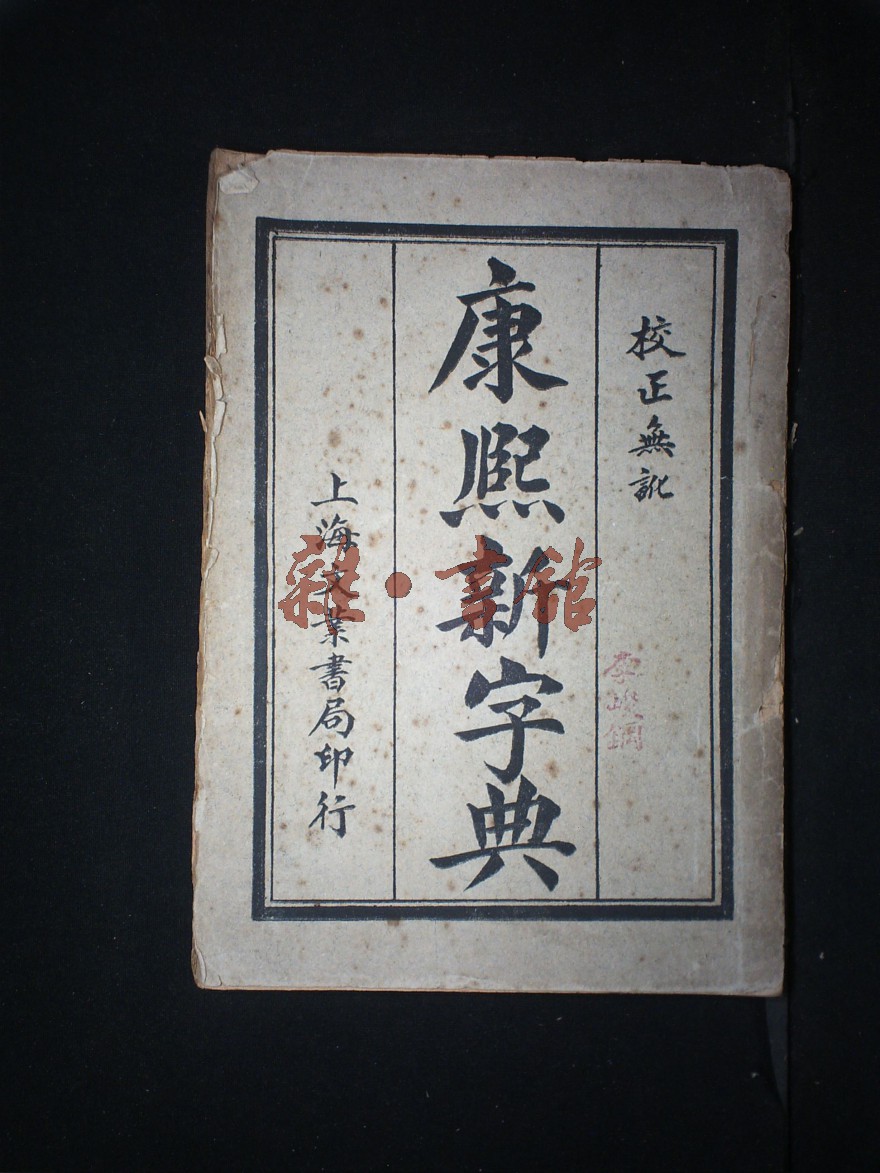 校正無訛
康熙新字典
上海文業書局印行
雜·書館